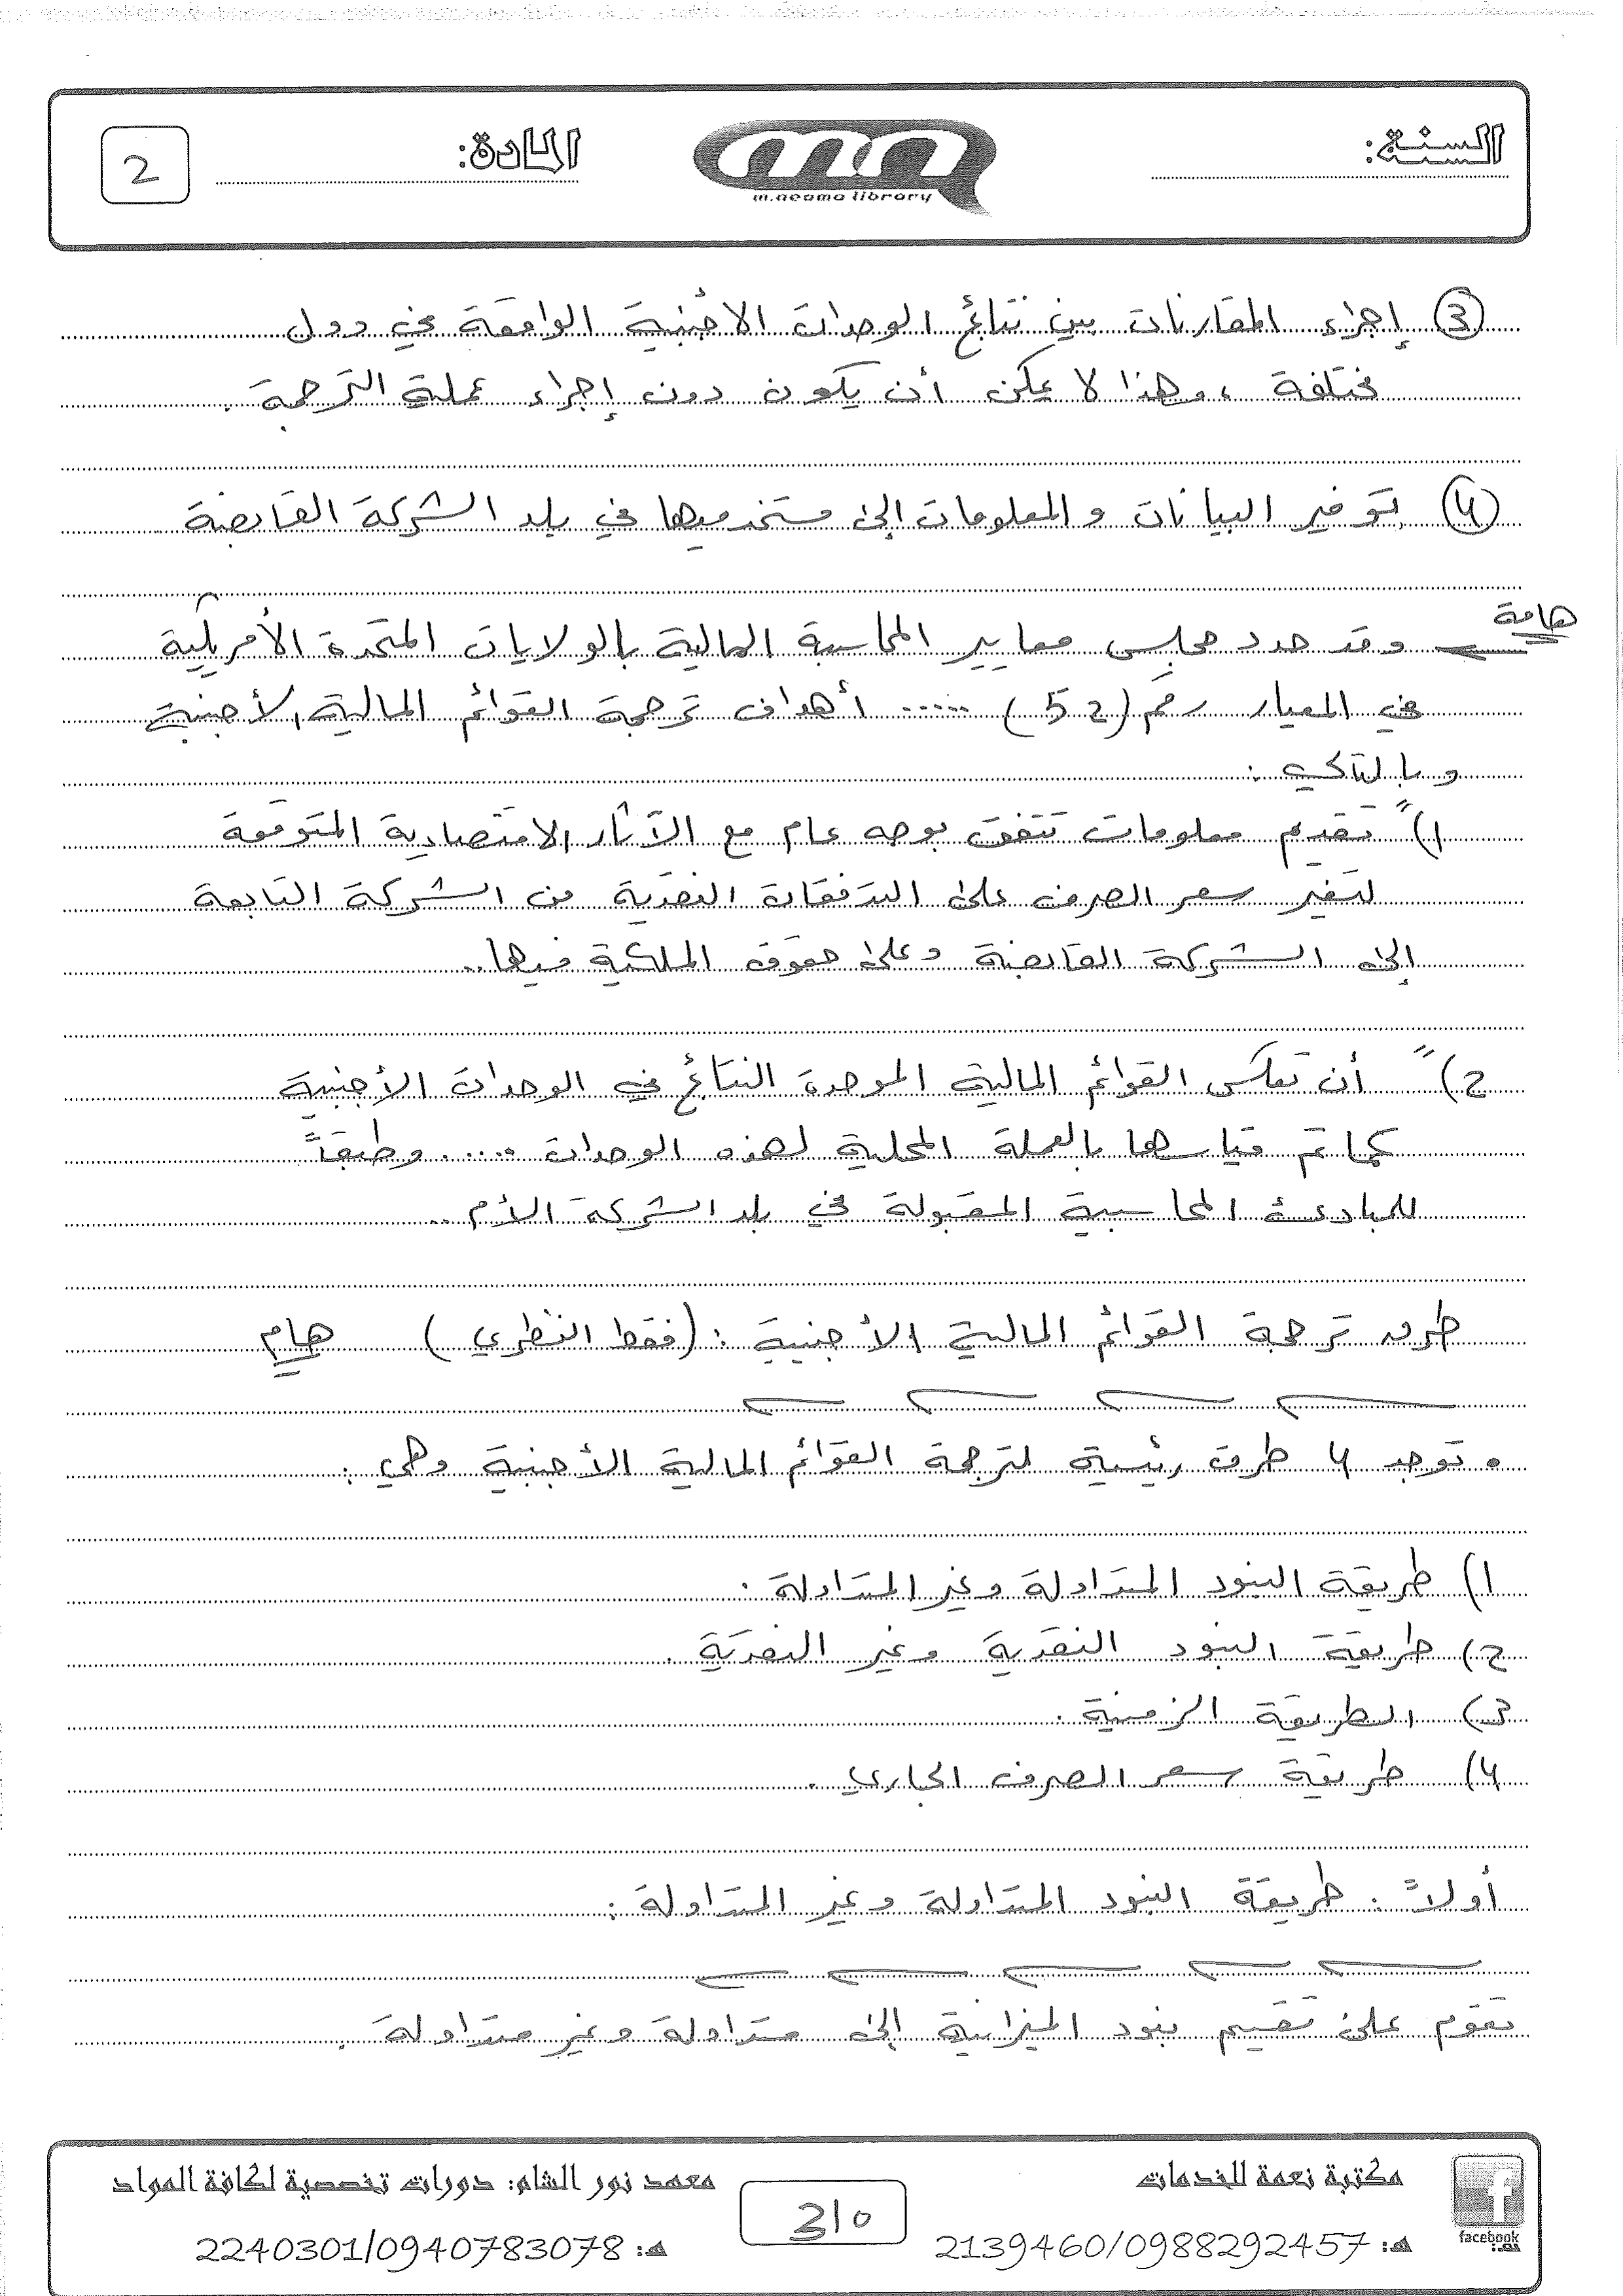 السنة:
m.neama library
المادة:
2
③ إجراء المقارنات بين نتائج الوحدات الأجنبية الواقعة في دول
مختلفة ، وهذا لا يمكن أن يكون دون إجراء عملية الترجمة .
④ توفير البيانات والمعلومات إلى مستخدميها في بلد الشركة القابضة
هامة
وقد حدد مجلس معايير المحاسبة المالية بالولايات المتحدة الأمريكية
في المعيار رقم (52) ...... أهداف ترجمة القوائم المالية الأجنبية
وبالتالي :
1) تقديم معلومات تتفق بوجه عام مع الآثار الاقتصادية المتوقعة
لتغير سعر الصرف على التدفقات النقدية من الشركة التابعة
إلى الشركة القابضة وعلى حقوق الملكية فيها..
2) أن تعكس القوائم المالية الموحدة النتائج في الوحدات الأجنبية
كما تم قياسها بالعملة المحلية لهذه الوحدات ..... وطبقاً
للمبادئ المحاسبية المقبولة في بلد الشركة الأم ..
طرق ترجمة القوائم المالية الأجنبية : (فقط النظري) هام
• توجد 4 طرق رئيسية لترجمة القوائم المالية الأجنبية وهي :
1) طريقة البنود المتداولة وغير المتداولة .
2) طريقة البنود النقدية وغير النقدية .
3) الطريقة الزمنية .
4) طريقة سعر الصرف الجاري .
أولاً : طريقة البنود المتداولة وغير المتداولة :
تقوم على تقسيم بنود الميزانية إلى متداولة وغير متداولة .
facebook
مكتبة نعمة للخدمات
هـ: 2139460/0988292457
310
معهد نور الشام: دورات تخصصية لكافة المواد
هـ: 2240301/0940783078